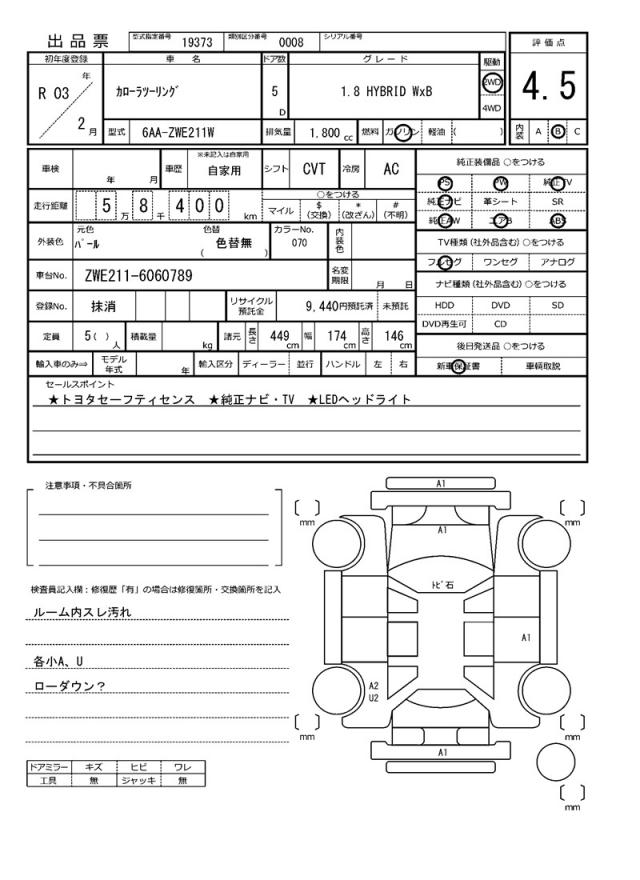 出品票 型式指定番号 19373 類別区分番号 0008 シリアル番号
評価点
初年度登録 車名 ドア数 グレード 駆動
R 03 年 2 月 カローラツーリング 5 D 1.8 HYBRID WxB 2WD 4WD
4.5
型式 6AA-ZWE211W 排気量 1.800 cc 燃料 ガソリン 軽油 ( )
内装 A B C
車検 年 月 車歴 ※未記入は自家用 自家用 シフト CVT 冷房 AC
純正装備品 ○をつける
PS PW 純正TV
走行距離 5 万 8 千 4 0 0 km ○をつける
マイル $(交換) *(改ざん) #(不明)
純正ナビ 革シート SR
純正AW エアB ABS
外装色 元色 パール 色替 色替無 ( ) カラーNo. 070 内装色
TV種類 (社外品含む) ○をつける
フルセグ ワンセグ アナログ
車台No. ZWE211-6060789 名変期限 月 日
ナビ種類 (社外品含む) ○をつける
登録No. 抹消 リサイクル預託金 9,440円預託済 未預託
HDD DVD SD
DVD再生可 CD
定員 5( ) 人 積載量 kg 諸元 長さ 449 cm 幅 174 cm 高さ 146 cm
後日発送品 ○をつける
輸入車のみ⇒ モデル年式 年 輸入区分 ディーラー 並行 ハンドル 左 右
新車保証書 車輌取説
セールスポイント
★トヨタセーフティセンス ★純正ナビ・TV ★LEDヘッドライト
注意事項・不具合箇所
A1
mm mm
A1
検査員記入欄：修復歴「有」の場合は修復箇所・交換箇所を記入
トビ石
ルーム内スレ汚れ
A1
各小A、U
ローダウン？
A2
U2
mm mm
A1
ドアミラー キズ ヒビ ワレ
工具 無 ジャッキ 無
mm